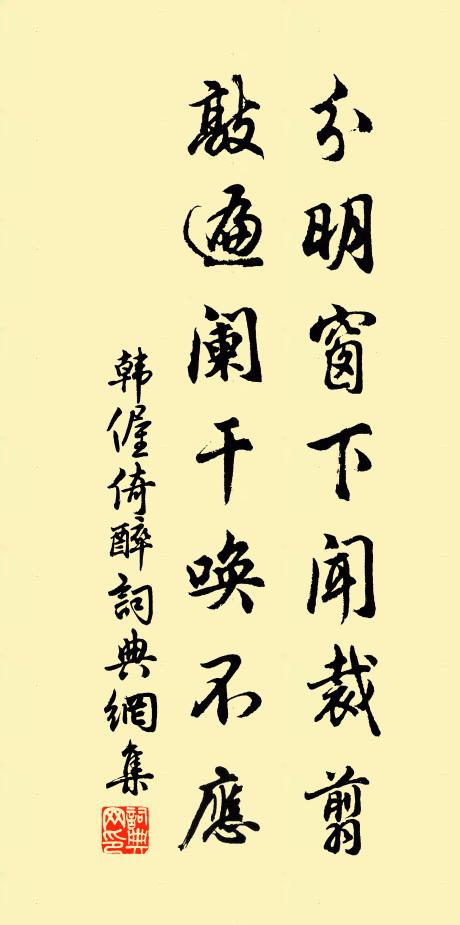 分明窗下闻裁翦
敲遍阑干唤不應
韩偓倚醉詞典網集
詞典网印